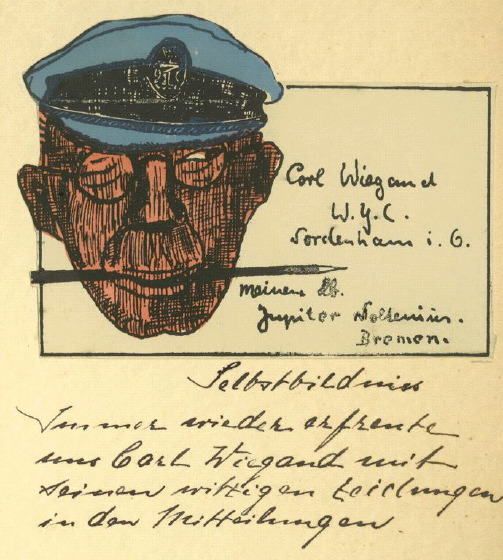 Carl Wiegand
W.Y.C.
Nordenham i. O.
meinem lb.
Jupiter Noltenius.
Bremen.
Selbstbildnis
Immer wieder erfreute
uns Carl Wiegand mit
seinen witzigen Zeichnungen
in den Mitteilungen.